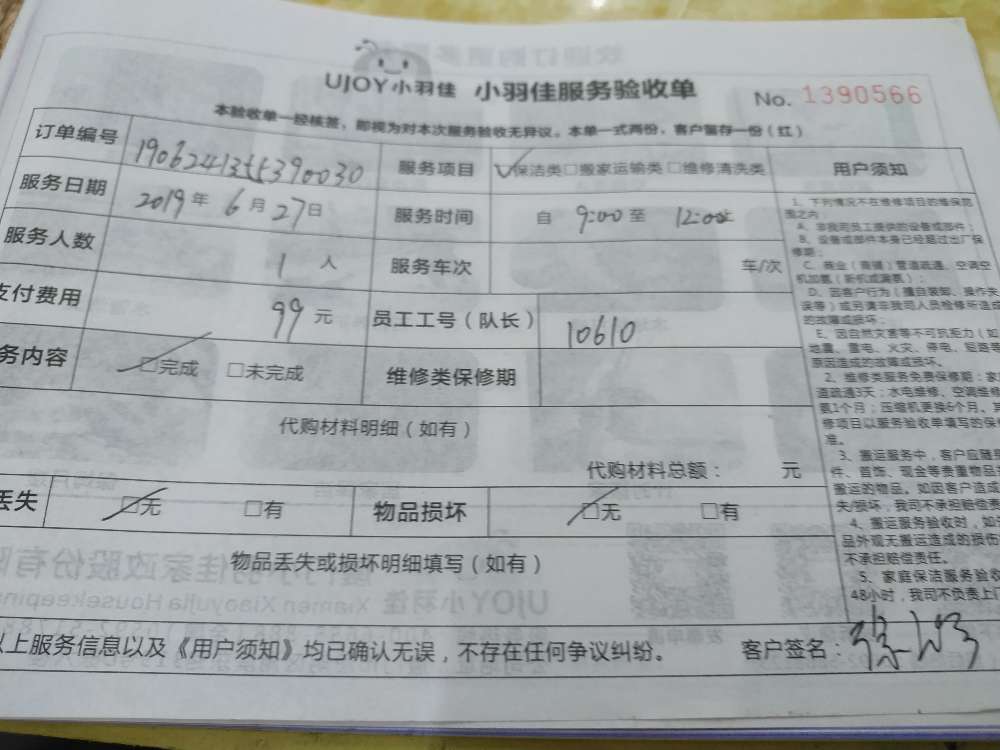 UJOY小羽佳 小羽佳服务验收单 No. 1390566
本验收单一经核签，即视为对本次服务验收无异议。本单一式两份，客户留存一份（红）
订单编号 服务项目 保洁类□搬家运输类□维修清洗类 用户须知
服务日期 2019年6月27日 服务时间 自 9:00至 12:00
服务人数 1 人 服务车次 车/次
支付费用 99元 员工工号（队长） 10610
务内容 □完成 □未完成 维修类保修期
代购材料明细（如有）
代购材料总额： 元
丢失 □无 □有 物品损坏 □无 □有
物品丢失或损坏明细填写（如有）
以上服务信息以及《用户须知》均已确认无误，不存在任何争议纠纷。 客户签名：
1、下列情况不在维修项目的维保范
围之内
A、非我司员工提供的设备或部件；
B、设备或部件本身已经超过出厂保
修期；
C、商业（商铺）管道疏通、空调空
机加氨（新机或漏氨）；
D、因客户行为（擅自装卸、操作失
误等）或另请非我司人员检修所造成
的故障或损坏；
E、因自然灾害等不可抗拒力（如
地震、雷电、火灾、停电、短路等
原因造成的故障或损坏。
2、维修类服务免费保修期：家
道疏通3天；水电维修、空调维修
氨1个月；压缩机更换6个月。其
修项目以服务验收单填写的保修
准。
3、搬运服务中，客户应随身
件、首饰、现金等贵重物品
搬运的物品。如因客户造成
失/损坏，我司不承担赔偿责
4、搬运服务验收时，如
品外观无搬运造成的损伤
不承担赔偿责任。
5、家庭保洁服务验收
48小时，我司不负责上门